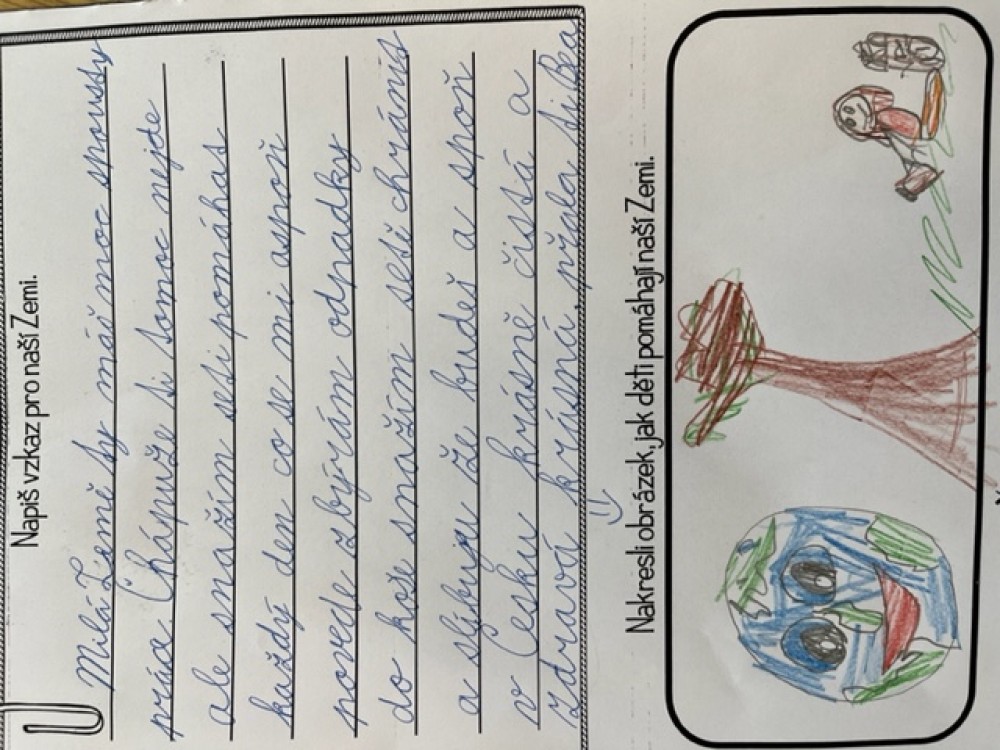 Napiš vzkaz pro naší Zemi.
Milá Země ty máš moc spoustu
práce Chápu že ti tomoc nejde
ale snažím seti pomáhas
každý den co se mi aspoň
povede zbýrám odpadky
do koše snažím setě chránit
a slibuju že budeš a spoň
v Česku krásně čistá a
zdravá krásná. přála ti Bea
:)
Nakresli obrázek, jak děti pomáhají naší Zemi.